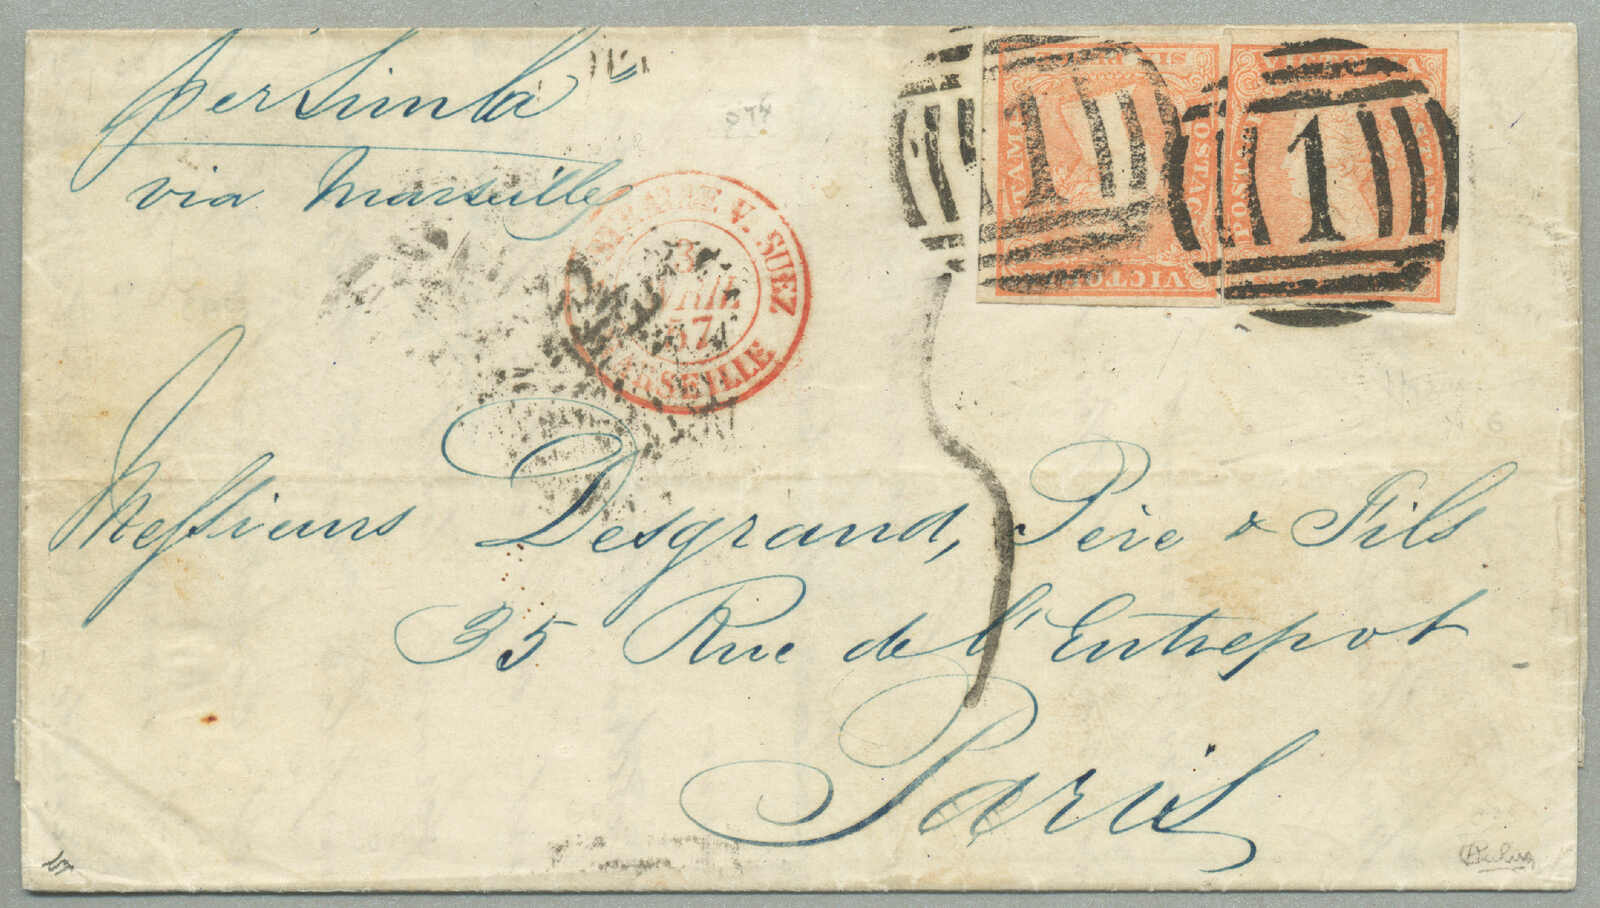 per Simla"
via Marseille
V. SUEZ
3
AVRIL
57
MARSEILLE
1
1
VICTORIA
POSTAGE
STAMP
SIX PENCE
POSTAGE
STAMP
Messieurs Desgrand, Père & Fils
35 Rue de l'Entrepot
Paris